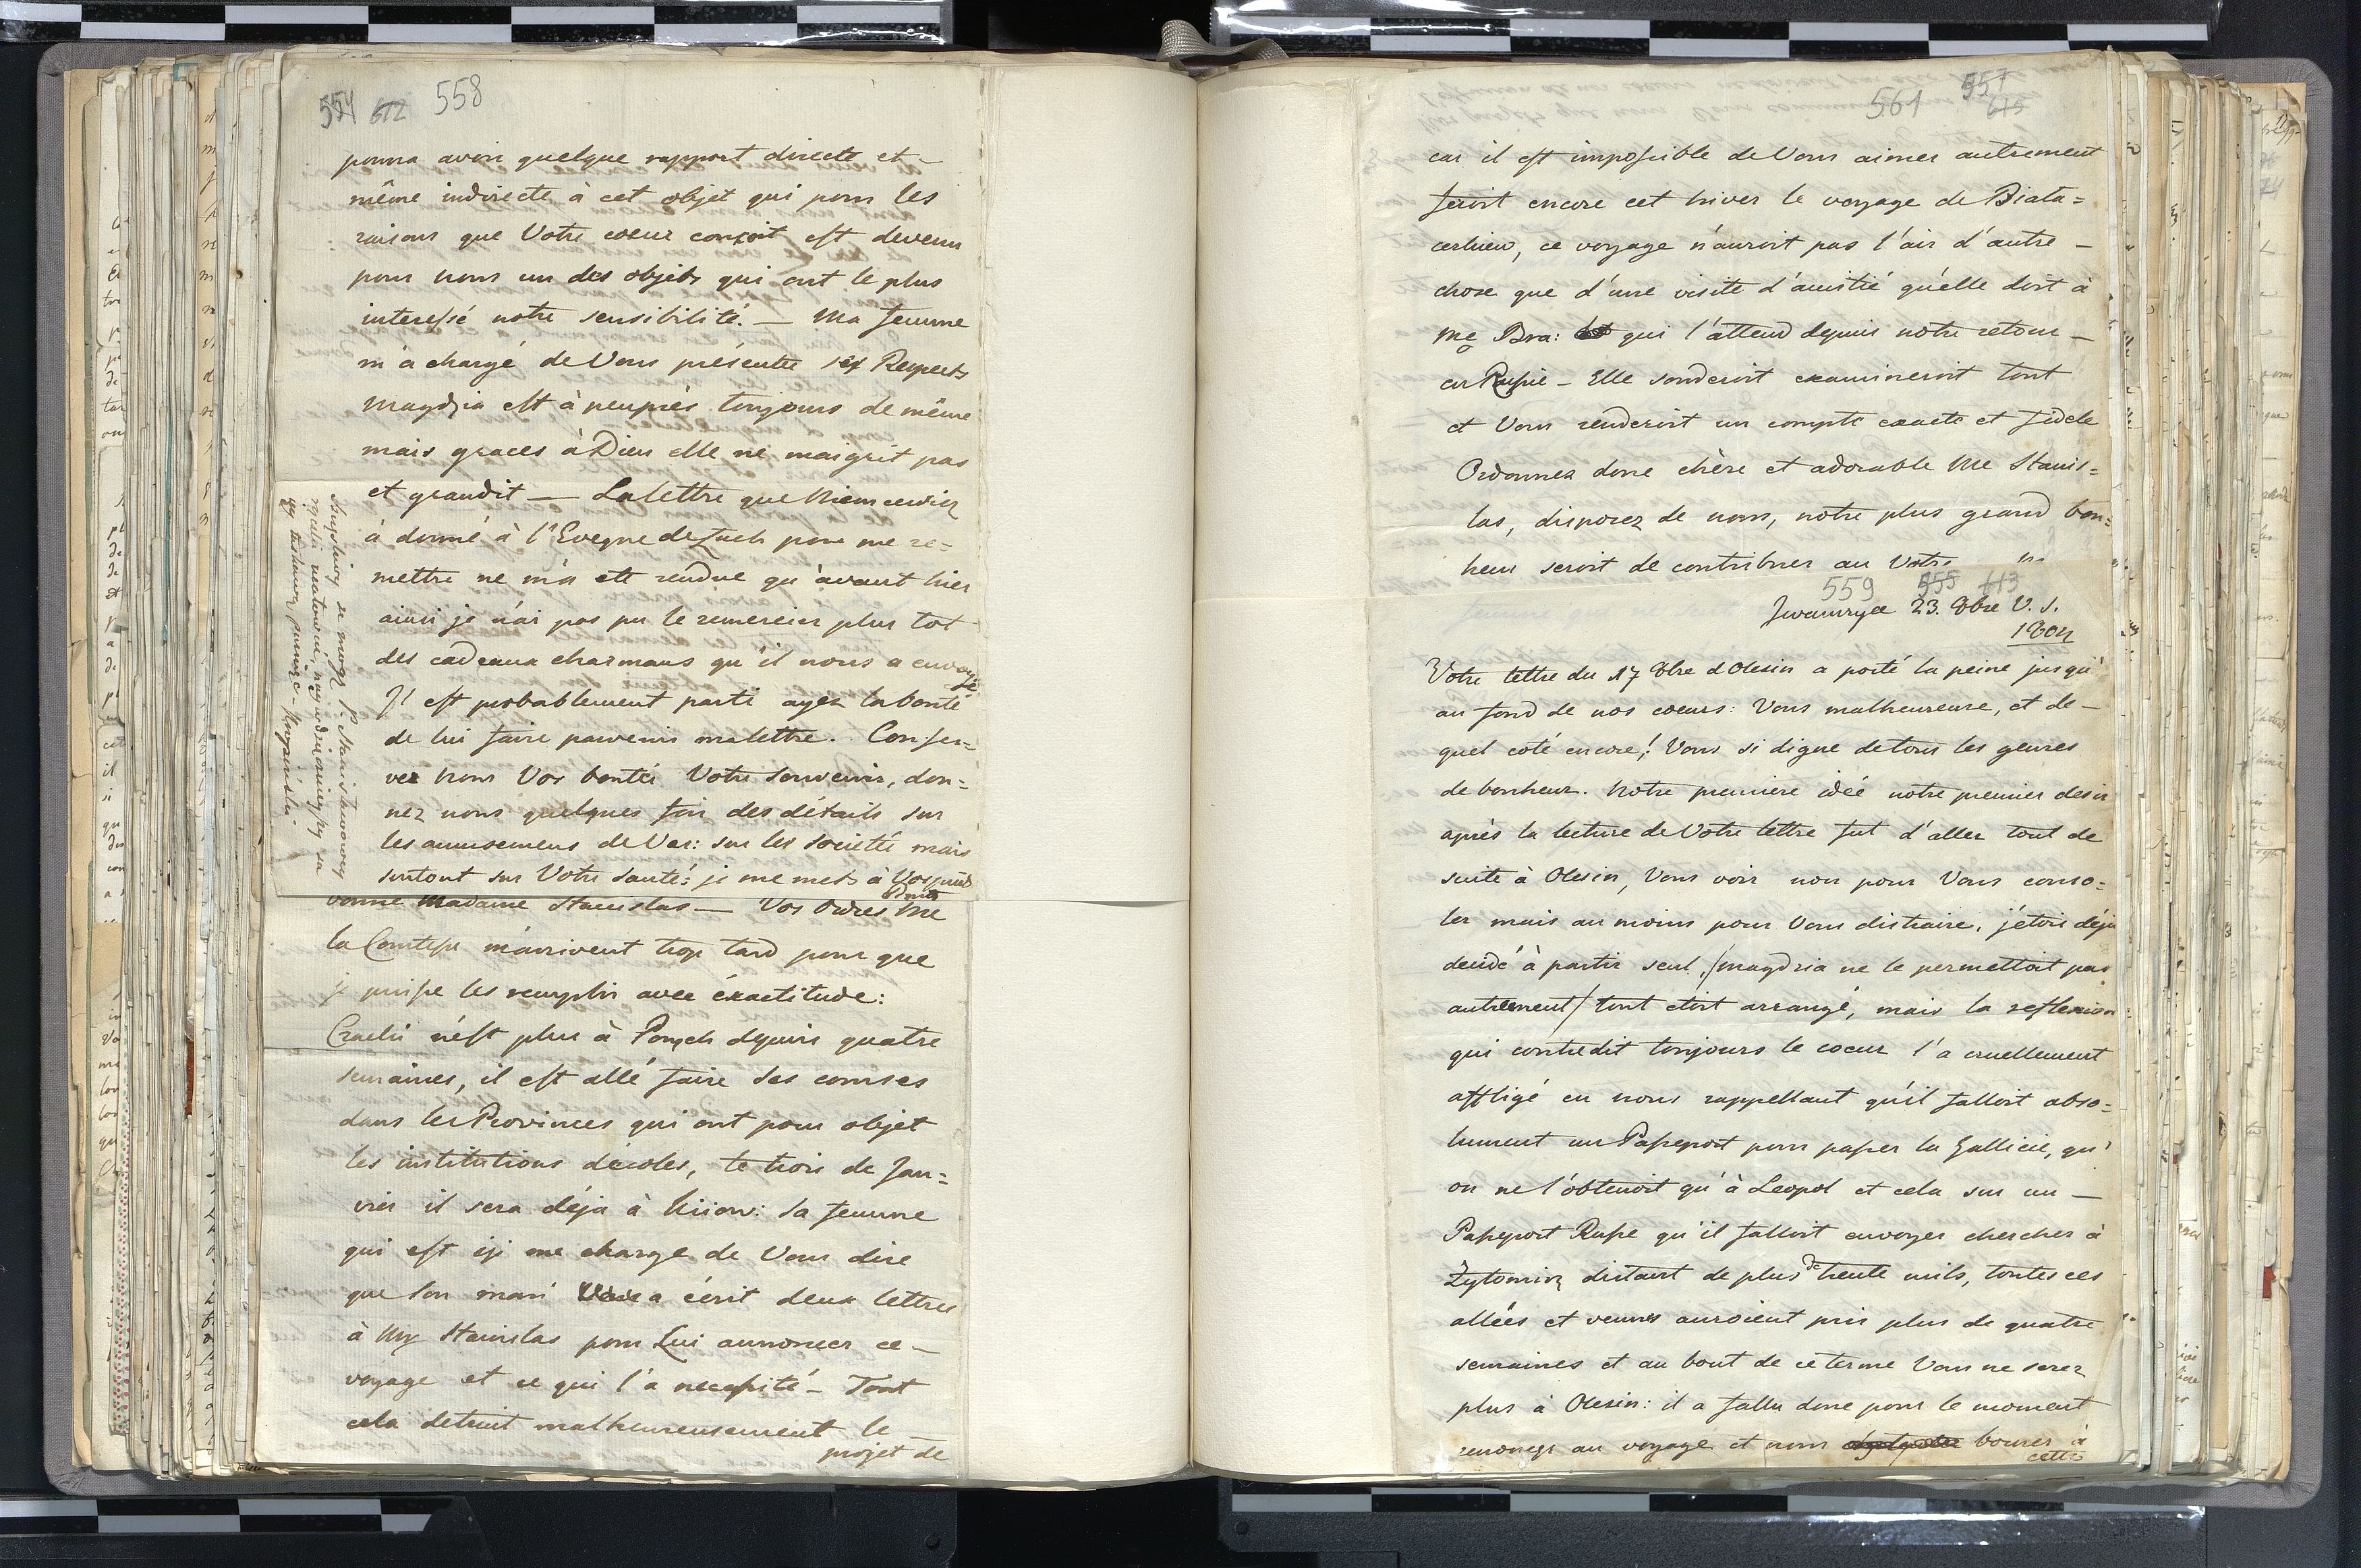 554 612 558
pourra avoir quelque rapport directe et –
même indirecte à cet objet qui pour les
raisons que Votre coeur conçoit est devenu
pour nous un des objets qui ont le plus
interessé notre sensibilité. — Ma femme
m'a chargé de Vous présenter ses Respects
Magdzia est à peuprés toujours de même
mais graces à Dieu elle ne maigrit pas
et grandit — La lettre que Niemcewicz
à donné à l'Eveque de Luck pour me re=
mettre ne m'a eté rendue qu'avant hier
ainsi je n'ai pas pu le remercier plus tot
des cadeaux charmans qu'il nous a envoyé
Il est probablement parti ayez la bonté
de lui faire parvenir ma lettre. Conser=
vez nous Vos bontés Votre souvenir, don=
nez nous quelques fois des détails sur
les amusemens de Var: sur les societés mais
surtout sur Votre santé: je me mets à Vos pieds
bonne Madame Stanislas — Vos Ordres Me
la Comtesse m'arrivent trop tard pour que
je puisse les remplir avec éxactitude:
Czacki n'est plus à Poryck depuis quatre
semaines, il est allé faire ses courses
dans les Provinces qui ont pour objet
les institutions d'ecoles, le trois de Jan=
vier il sera déja à Kiiow: sa femme
qui est içi me charge de Vous dire
que son mari a écrit deux lettres
à Mr Stanislas pour Lui annoncer ce –
voyage et ce qui l'a necessité – Tout
cela detruit malheureusement le –
projet de
561 557 615
car il est impossible de Vous aimer autrement
feroit encore cet hiver le voyage de Biała=
cerkiew, ce voyage n'auroit pas l'air d'autre –
chose que d'une visite d'amitié qu'elle doit à
Me Bra: qui l'attend depuis notre retour –
en Russie – Elle sonderoit examineroit tout
et Vous renderoit un compte exacte et fidele
Ordonnez donc chère et adorable Me Stanis=
las, disposez de nous, notre plus grand bon=
heur seroit de contribuer au Votre
559 555 613
23. 8bre V. S.
1804
Votre lettre du 17 8bre d'Olesin a porté la peine jusqu'
au fond de nos coeurs: Vous malheureuse, et de –
quel coté encore! Vous si digne de tous les genres
de bonheur. Notre premiere idée notre premier desir
après la lecture de Votre lettre fut d'aller tout de
suite à Olesin, Vous voir non pour Vous conso=
ler mais au moins pour Vous distraire, j'étois déja
decidé à partir seul, /Magdzia ne le permettoit pas
autrement/ tout etoit arrangé, mais la reflexion
qui contredit toujours le coeur l'a cruellement
affligé en nous rappellant qu'il falloit abso=
lument un Passeport pour passer la Gallicie, qu'
on ne l'obtenoit qu'à Leopol et cela sur un –
Passeport Russe qu'il falloit envoyer chercher à
Żytomirz distant de plus de trente mils, toutes ces
allées et venues auroient pris plus de quatre
semaines et au bout de ce terme Vous ne serez
plus à Olesin: il a fallu donc pour le moment
renoncer au voyage et nous borner à
cette